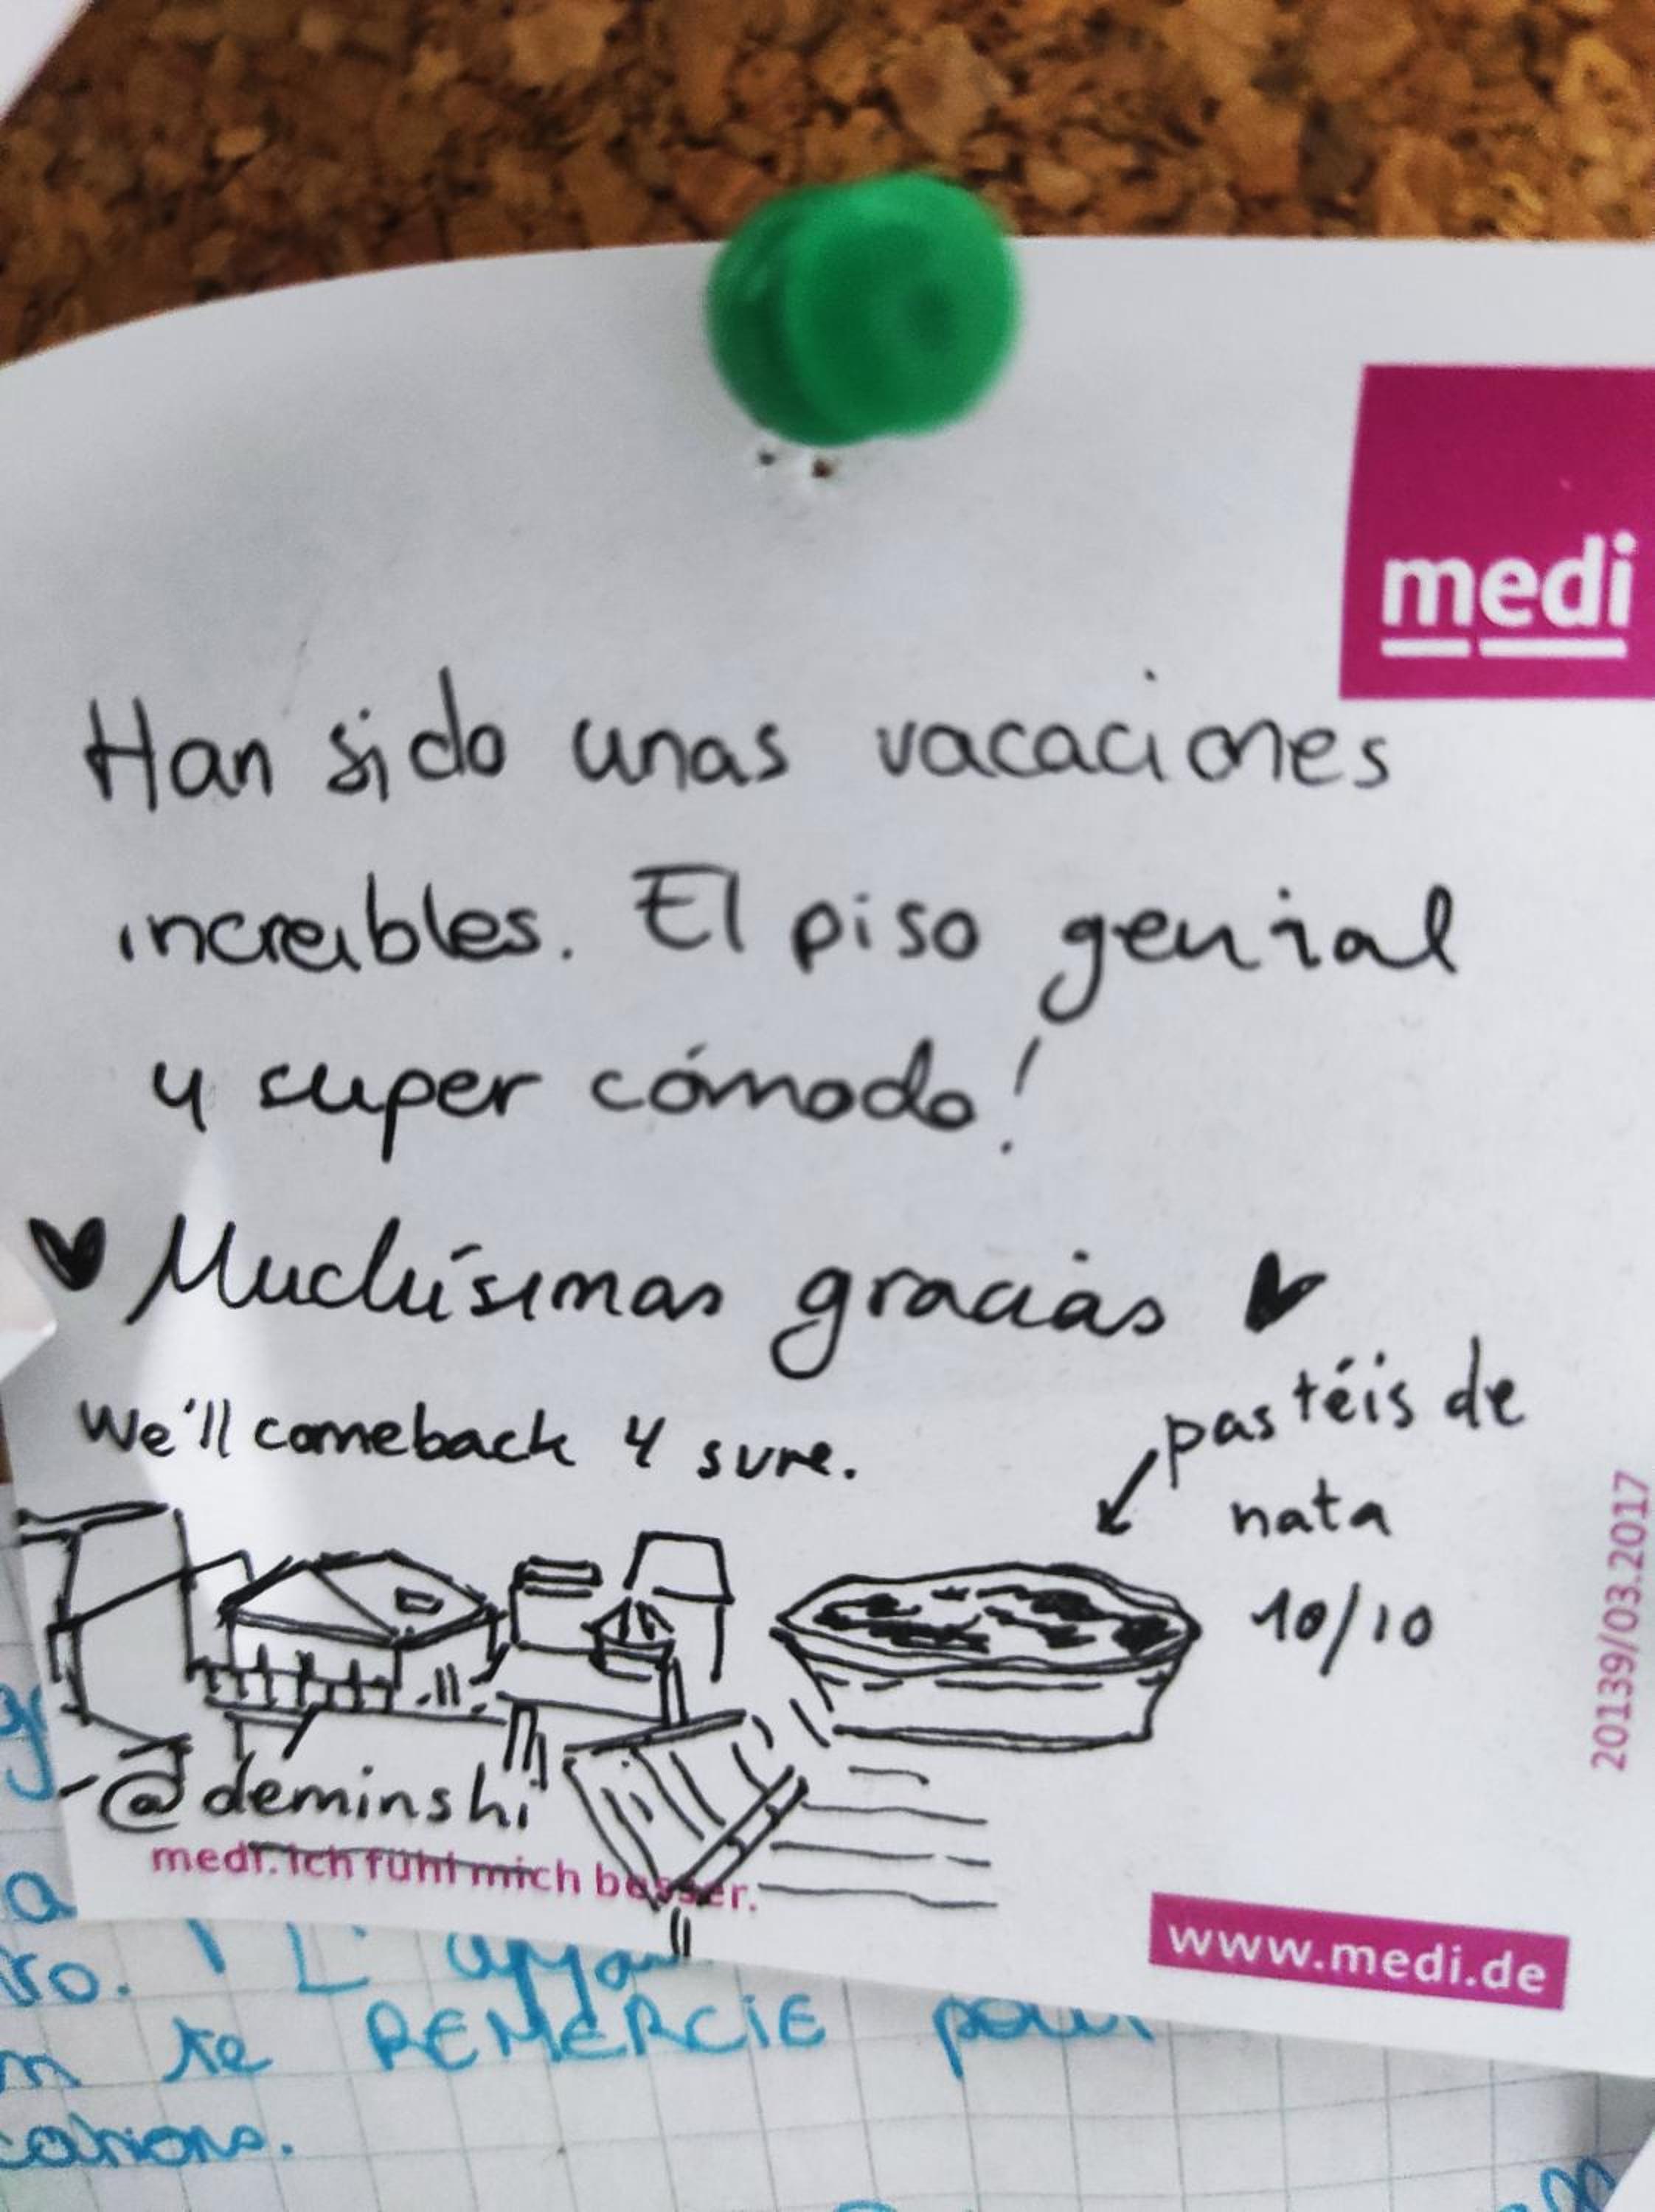 medi
Han sido unas vacaciones
increibles. El piso genial
y super cómodo!
Muchísimas gracias
We'll comeback 4 sure.
pastéis de
nata
10/10
@deminshi
medi. ich fühl mich besser.
www.medi.de
20139/03.2017
a
te REMERCIE pour